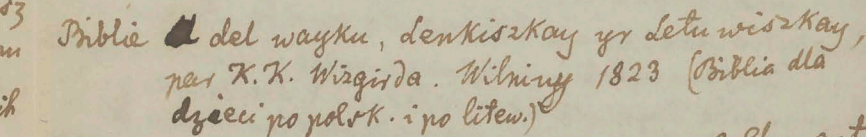 Biblie del wayku, Lenkiszkay yr Letuwiszkay,
par K. K. Wizgirda. Wilniuy 1823 (Biblia dla
dzieci po polsk. i po litew.)